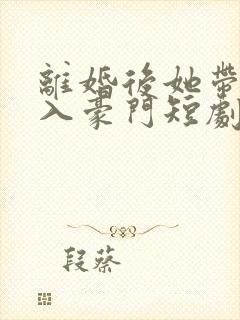 離婚後她帶
入豪門短劇
段蔡